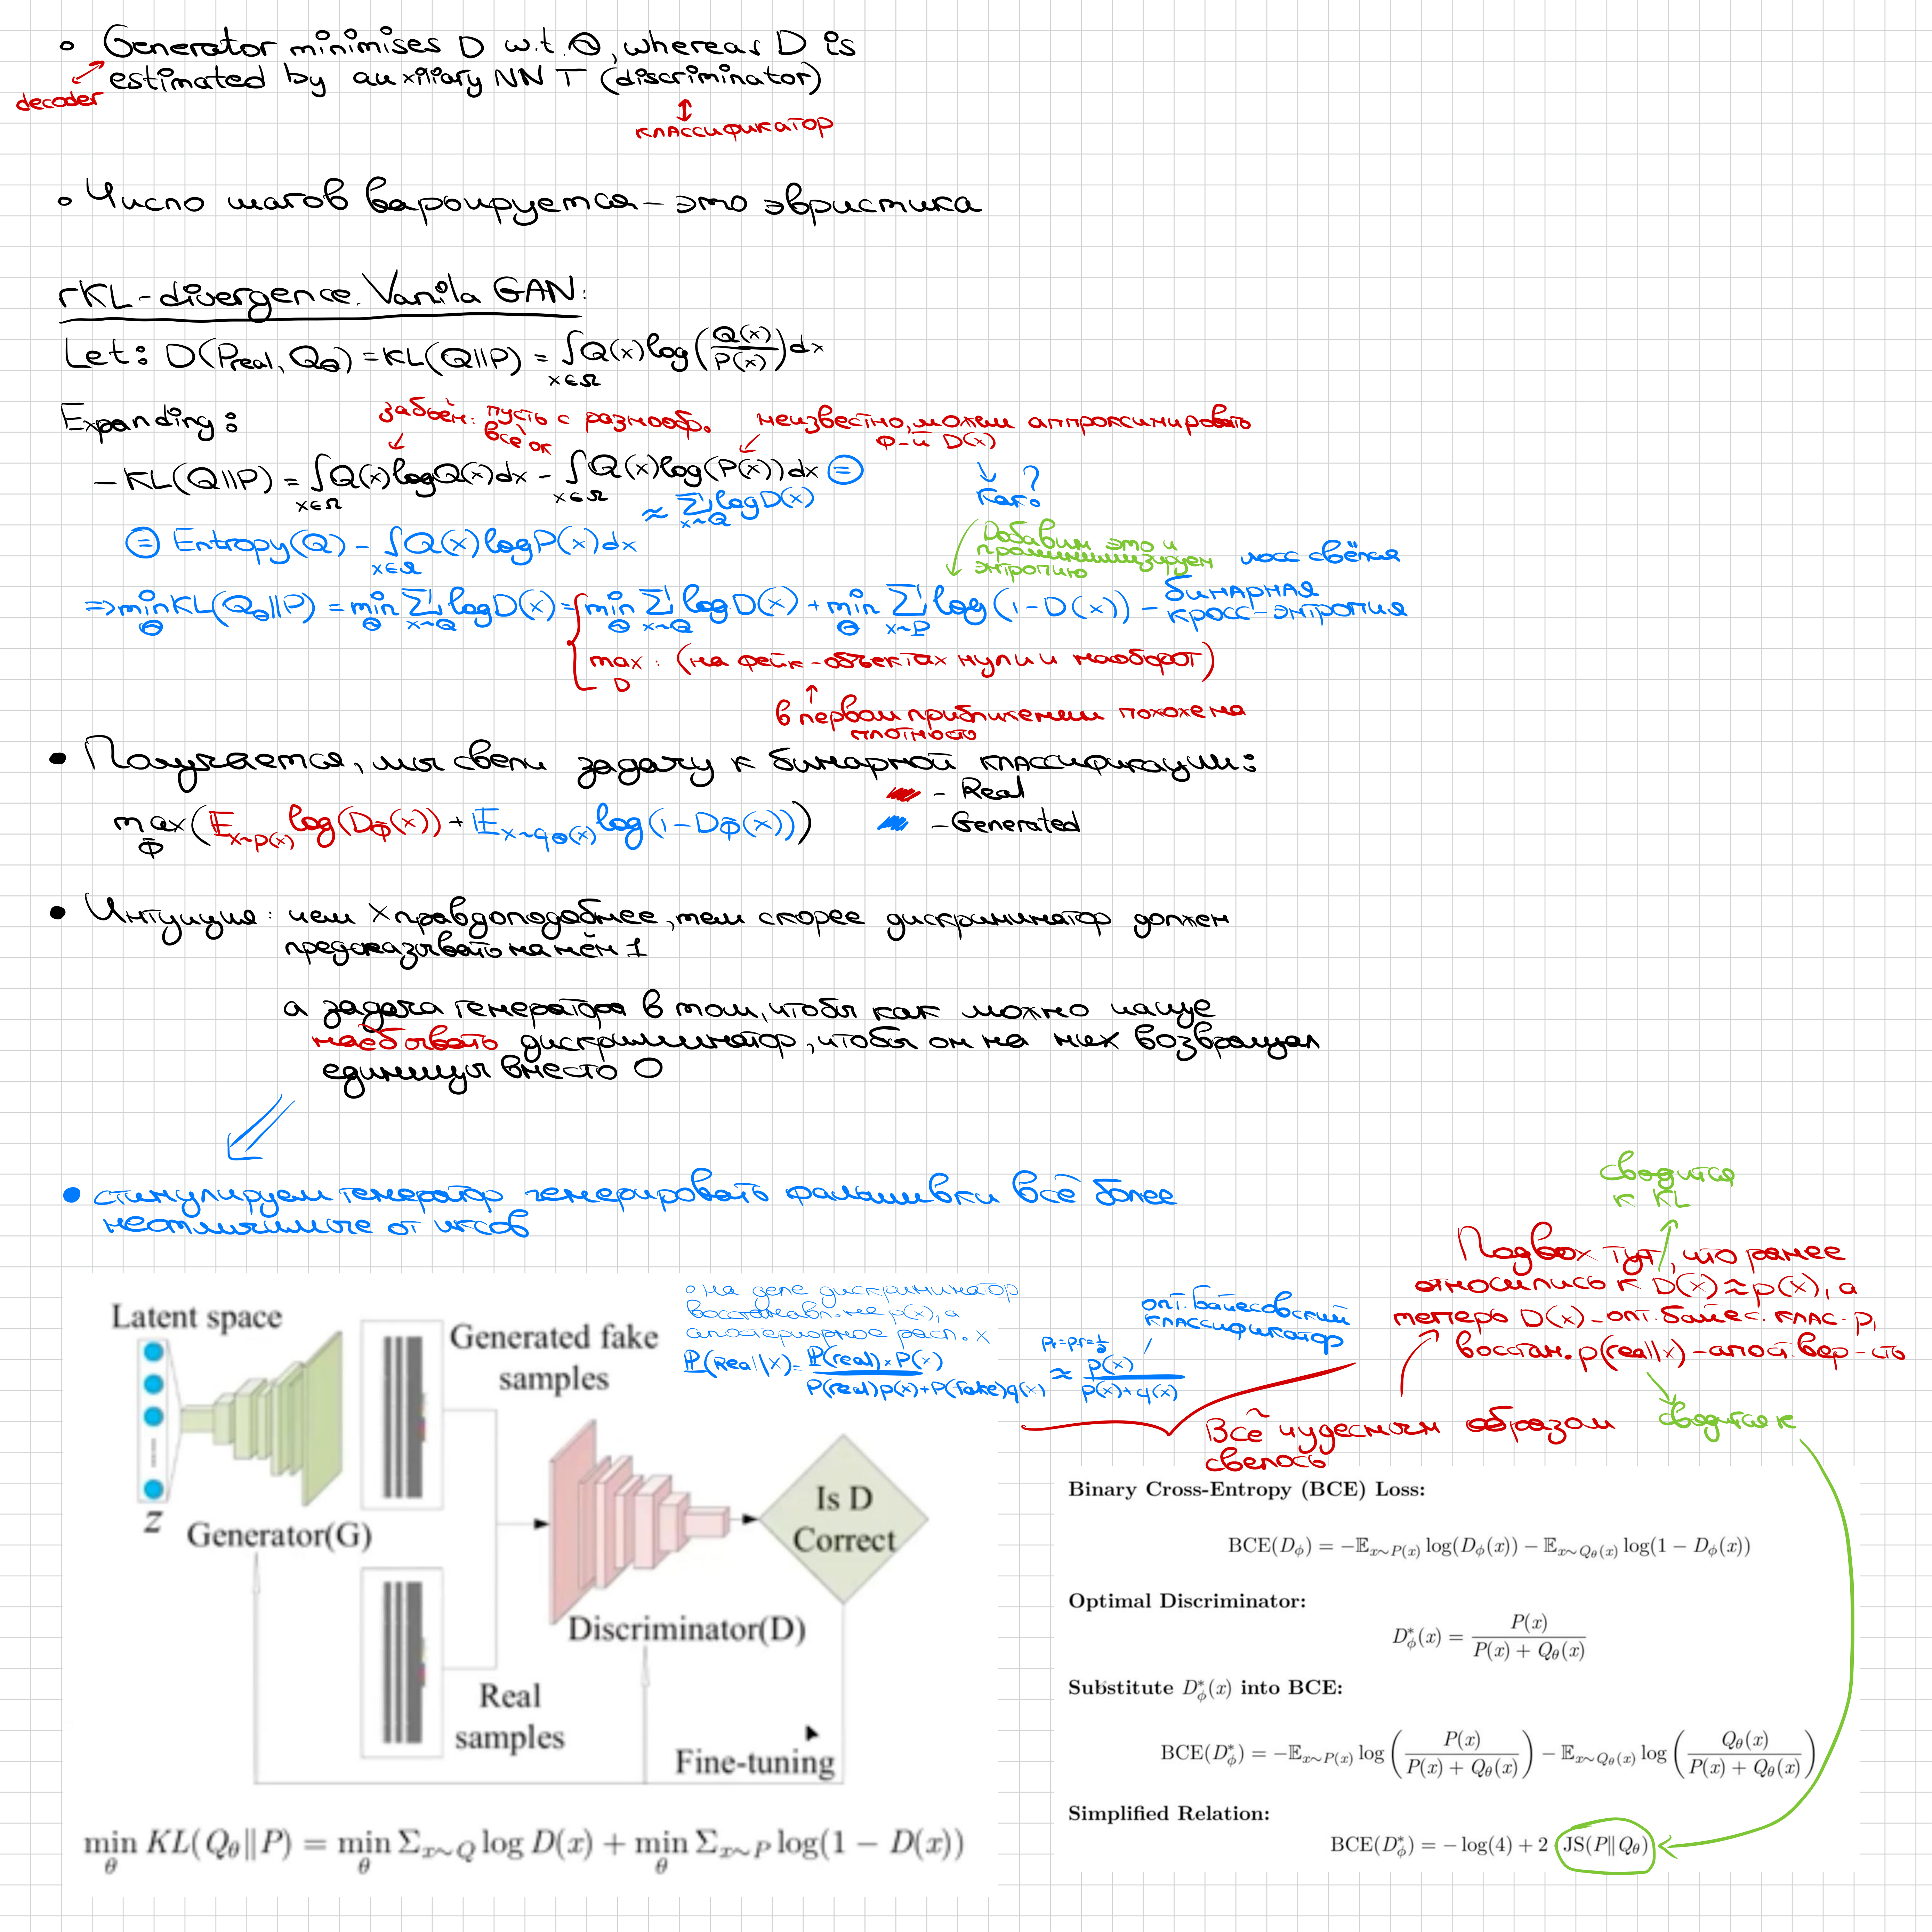 ∘ Generator minimises D w.t. Θ, whereas D is
estimated by auxiliary NN T (discriminator)
decoder
↕
классификатор
∘ Число шагов варьируется – это эвристика
rKL-divergence. Vanila GAN:
Let: D(Preal, Q_Θ) = KL(Q||P) = ∫_{x∈Ω} Q(x) log(Q(x)/P(x)) dx
Expanding:
забьём: пусть с разнооб.
всё ок
неизвестно, можем аппроксимировать
ф-й D(x)
– KL(Q||P) = ∫_{x∈Ω} Q(x) log Q(x) dx – ∫_{x∈Ω} Q(x) log(P(x)) dx ⊜
≈ Σ_{x~Q} log D(x)
↓ ?
Как?
⊜ Entropy(Q) – ∫_{x∈Ω} Q(x) log P(x) dx
Добавим это и
проминимизируем
энтропию
лосс свёлся
⇒ min_Θ KL(Q_Θ||P) = min_Θ Σ_{x~Q} log D(x) = min_Θ Σ_{x~Q} log D(x) + min_Θ Σ_{x~P} log(1-D(x)) – бинарная
кросс-энтропия
max_D : (на фейк-объектах нули и наоборот)
↑
в первом приближении похоже на
плотность
• Получается, мы свели задачу к бинарной классификации:
– Real
max_Φ (E_{x~p(x)} log(D_Φ(x)) + E_{x~q_Θ(x)} log(1-D_Φ(x)))
– Generated
• Интуиция: чем x правдоподобнее, тем скорее дискриминатор должен
предсказывать на нём 1
а задача генератора в том, чтобы как можно чаще
наёбывать дискриминатор, чтобы он на них возвращал
единицы вместо 0
• стимулируем генератор генерировать фальшивки всё более
неотличимые от иксов
сводится
к KL
Подвох тут, что ранее
относились к D(x) ≈ p(x), а
теперь D(x) – опт. байес. клас. р,
восстан. p(real|x) – апост. вер-сть
сводится к
∘ на деле дискриминатор
восстанавл. не p(x), а
апостериорное расп. x
P(Real|x) = P(real)×P(x) / P(real)p(x)+P(fake)q(x) ≈ P(x) / P(x)+q(x)
Pr=Pf=1/2
опт. байесовский
классификатор
Всё чудесным образом
свелось
Latent space
Generated fake
samples
z
Generator(G)
Is D
Correct
Discriminator(D)
Real
samples
Fine-tuning
min_θ KL(Q_θ‖P) = min_θ Σ_{x∼Q} log D(x) + min_θ Σ_{x∼P} log(1 − D(x))
Binary Cross-Entropy (BCE) Loss:
BCE(D_ϕ) = −𝔼_{x∼P(x)} log(D_ϕ(x)) − 𝔼_{x∼Q_θ(x)} log(1 − D_ϕ(x))
Optimal Discriminator:
D*_ϕ(x) = P(x) / P(x) + Q_θ(x)
Substitute D*_ϕ(x) into BCE:
BCE(D*_ϕ) = −𝔼_{x∼P(x)} log (P(x) / P(x) + Q_θ(x)) − 𝔼_{x∼Q_θ(x)} log (Q_θ(x) / P(x) + Q_θ(x))
Simplified Relation:
BCE(D*_ϕ) = − log(4) + 2 · JS(P‖Q_θ)